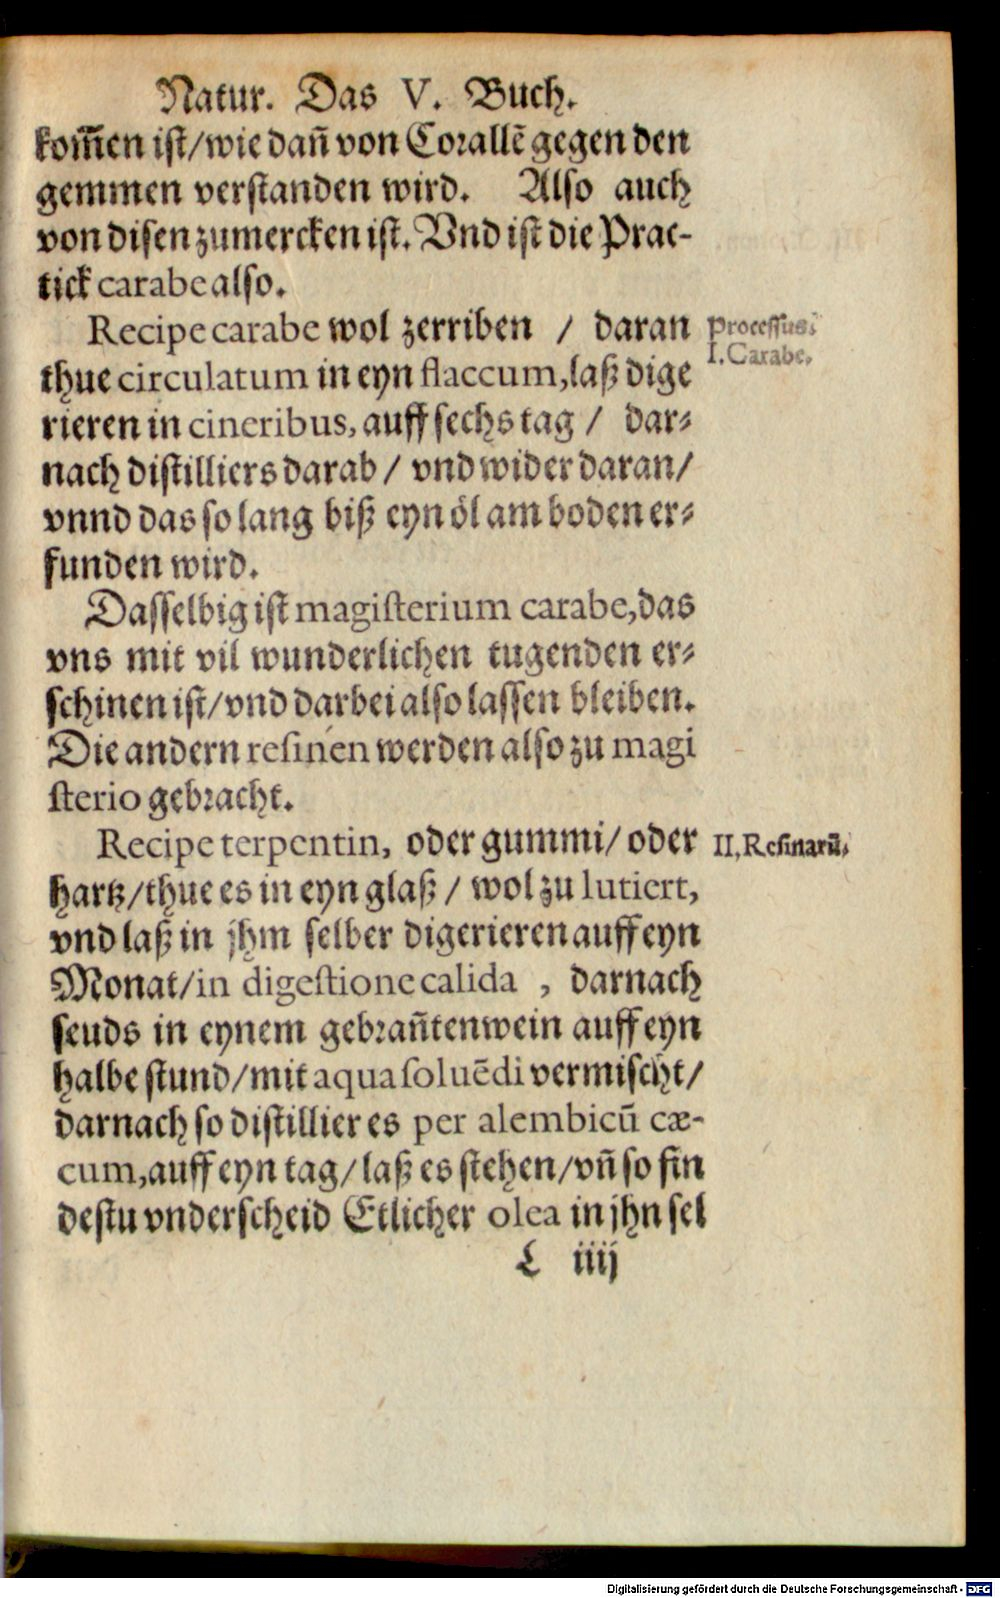 Natur. Das V. Buch.
kom̃en ist/wie dañ von Corallẽ gegen den
gemmen verstanden wird. Also auch
von disen zumercken ist. Vnd ist die Prac-
tick carabe also.
Recipe carabe wol zerriben / daran
Processus.
I. Carabe.
thue circulatum in eyn flaccum, laß dige
rieren in cineribus, auff sechs tag / dar-
nach distilliers darab / vnd wider daran/
vnnd das so lang biß eyn öl am boden er-
funden wird.
Dasselbig ist magisterium carabe, das
vns mit vil wunderlichen tugenden er-
schinen ist/vnd darbei also lassen bleiben.
Die andern resinen werden also zu magi
sterio gebracht.
Recipe terpentin, oder gummi/ oder
II. Resinarũ.
hartz/thue es in eyn glaß / wol zu lutiert,
vnd laß in jhm selber digerieren auff eyn
Monat/in digestione calida , darnach
seuds in eynem gebrañtenwein auff eyn
halbe stund/mit aqua soluẽdi vermischt/
darnach so distillier es per alembicũ cæ-
cum, auff eyn tag/laß es stehen/vñ so fin
destu vnderscheid Etlicher olea in jhn sel
L iiij
Digitalisierung gefördert durch die Deutsche Forschungsgemeinschaft - DFG